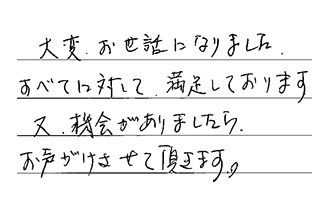 大変.お世話になりました.
すべてに対して.満足しております
又.機会がありましたら.
お声がけさせて頂きます。